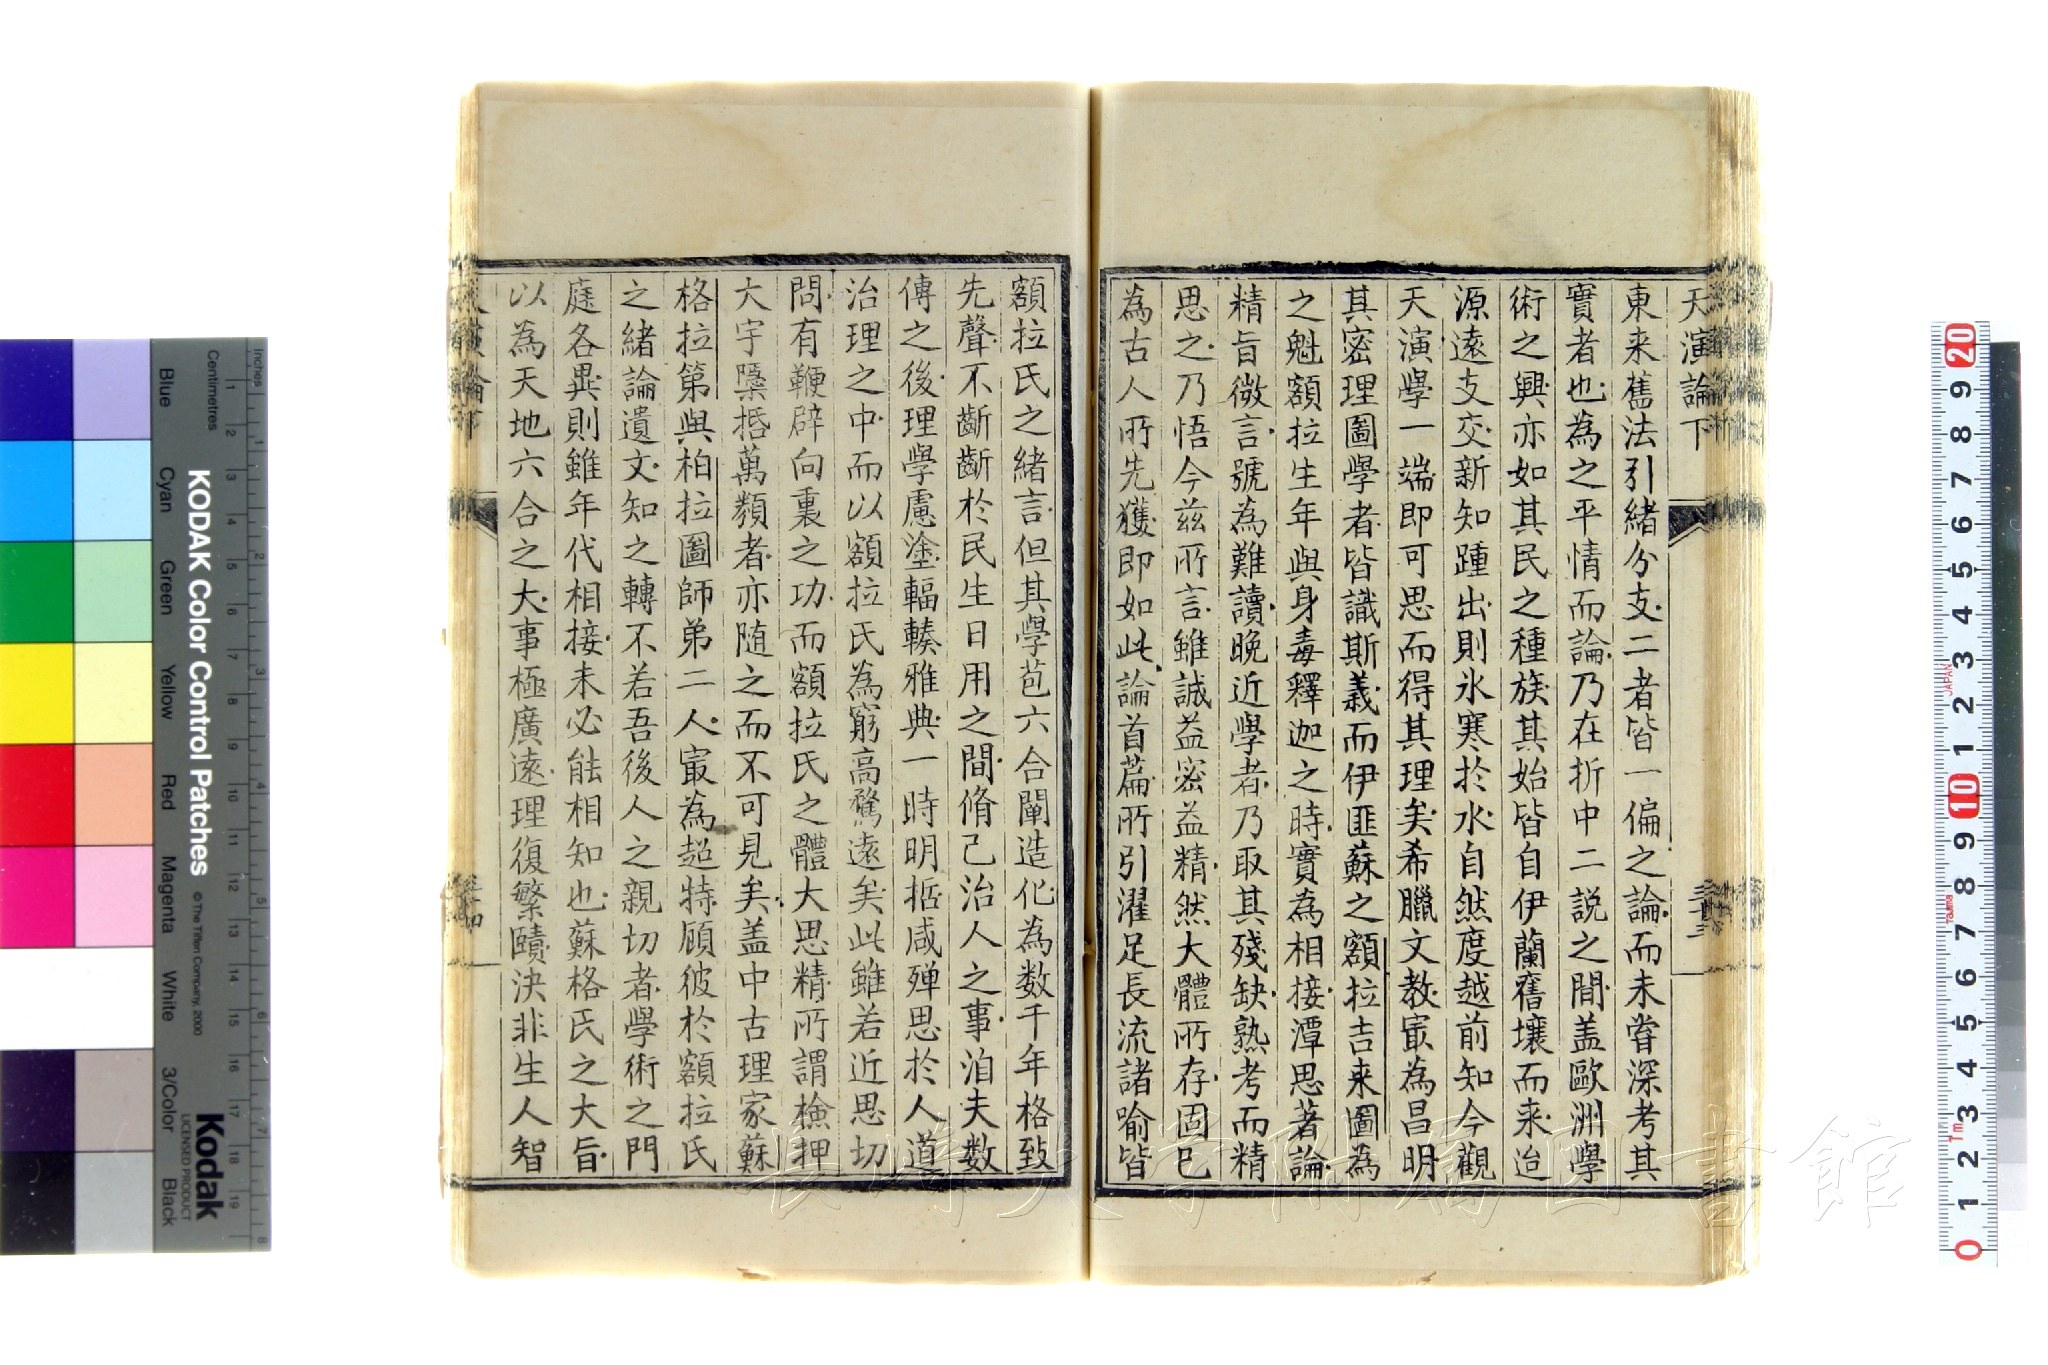 天演論下
東来舊法引緒分支二者皆一偏之論而未嘗深考其
實者也為之平情而論乃在折中二説之間盖歐洲學
術之興亦如其民之種族其始皆自伊蘭舊壤而来迨
源遠支交新知踵出則氷寒於水自然度越前知今觀
天演學一端即可思而得其理矣希臘文教㝡為昌明
其密理圖學者皆識斯義而伊匪蘇之額拉吉来圖為
之魁額拉生年與身毒釋迦之時實為相接潭思著論
精旨微言號為難讀晚近學者乃取其殘缺熟考而精
思之乃悟今兹所言雖誠益密益精然大體所存固已
為古人所先獲即如此論首篇所引濯足長流諸喻皆
額拉氏之緒言但其學苞六合闡造化為数千年格致
先聲不斷斷於民生日用之間脩己治人之事洎夫数
傳之後理學慮塗輻輳雅典一時明哲咸殫思於人道
治理之中而以額拉氏為窮高騖遠矣此雖若近思切
問有鞭辟向裏之功而額拉氏之體大思精所謂檢押
大宇隱括萬類者亦随之而不可見矣盖中古理家蘇
格拉第與柏拉圖師弟二人㝡為超特顧彼於額拉氏
之緒論遺文知之轉不若吾後人之親切者學術之門
庭各異則雖年代相接未必能相知也蘇格氏之大旨
以為天地六合之大事極廣遠理復繁賾決非生人智
三十三
三十四
長崎大学附属図書館
KODAK Color Control Patches
© The Tiffen Company, 2000
Kodak
LICENSED PRODUCT
Inches
Centimetres
Blue
Cyan
Green
Yellow
Red
Magenta
White
3/Color
Black
1 2 3 4 5 6 7 8
1 2 3 4 5 6 7 8 9 10 11 12 13 14 15 16 17 18 19
20 9 8 7 6 5 4 3 2 1 10 9 8 7 6 5 4 3 2 1 0
JAPAN
Tajima